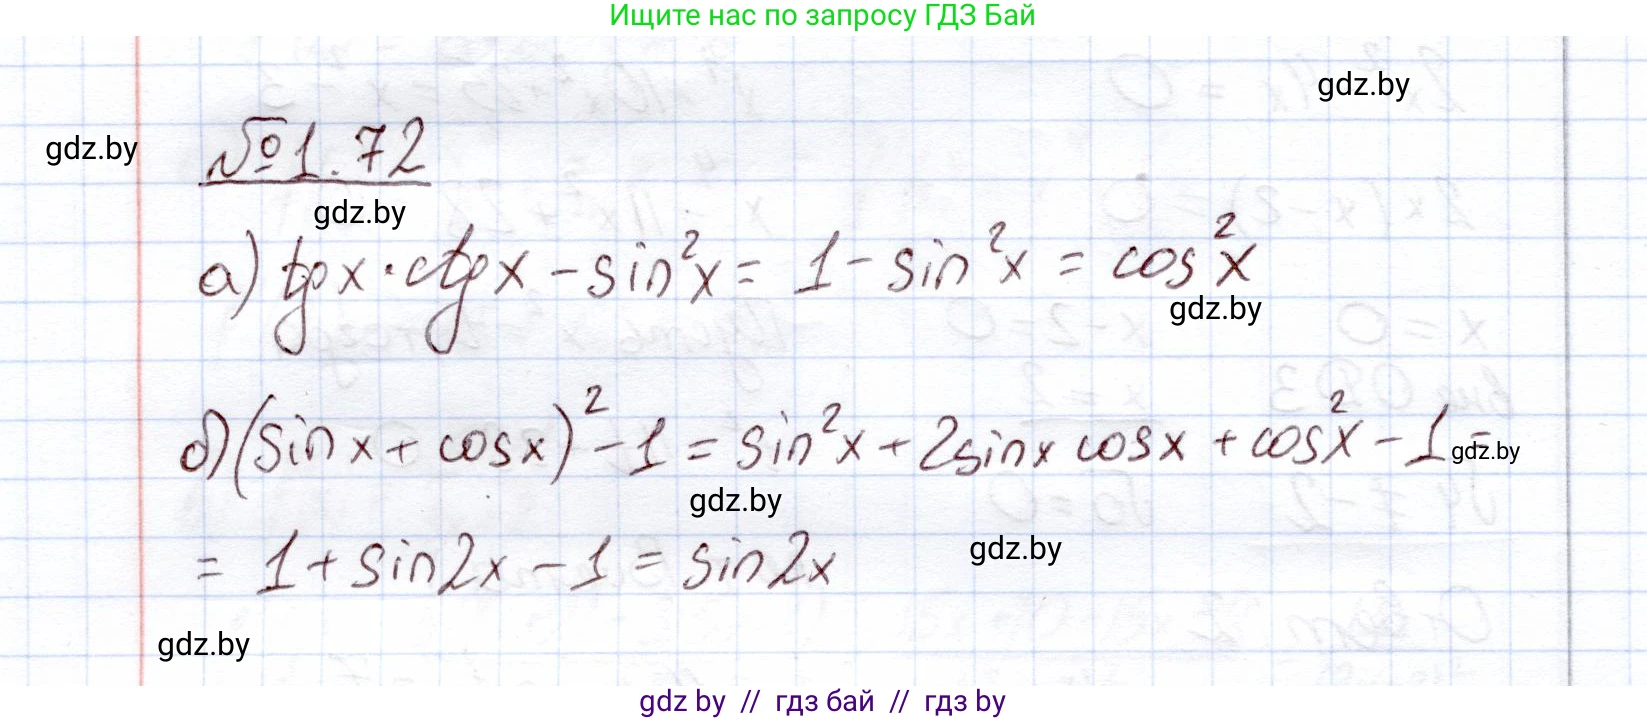 Ищите нас по запросу ГДЗ Бай
gdz.by
gdz.by
№1.72
gdz.by
а) tgx·ctgx - sin²x = 1 - sin²x = cos²x
gdz.by
б) (sinx + cosx)² - 1 = sin²x + 2sinx cosx + cos²x - 1 =
gdz.by
gdz.by
= 1 + sin2x - 1 = sin2x
gdz.by
gdz.by
gdz by // гдз бай // гдз by